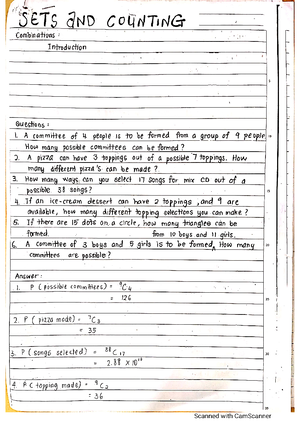 SETS AND COUNTING
Combinations :
Introduction
Questions :
1. A committee of 4 people is to be formed from a group of 9 people
How many possible committees can be formed ?
2. A pizza can have 3 toppings out of a possible 7 toppings. How
many different pizza's can be made ?
3. How many ways can you select 17 songs for mix CD out of a
possible 38 songs?
4. If an ice-cream dessert can have 2 toppings, and 9 are
available, how many different topping selections you can make ?
5. If there are 15 dots on a circle, how many triangles can be
formed.
from 10 boys and 11 girls.
6. A committee of 3 boys and 5 girls is to be formed ^ How many
committees are possible ?
Answer :
1. P (possible committees) = ⁹C₄
= 126
2. P ( pizza made) = ⁷C₃
= 35
3. P ( songs selected) = ³⁸C₁₇
= 2.88 × 10¹⁰
4. P ( topping made) = ⁹C₂
= 36
Scanned with CamScanner